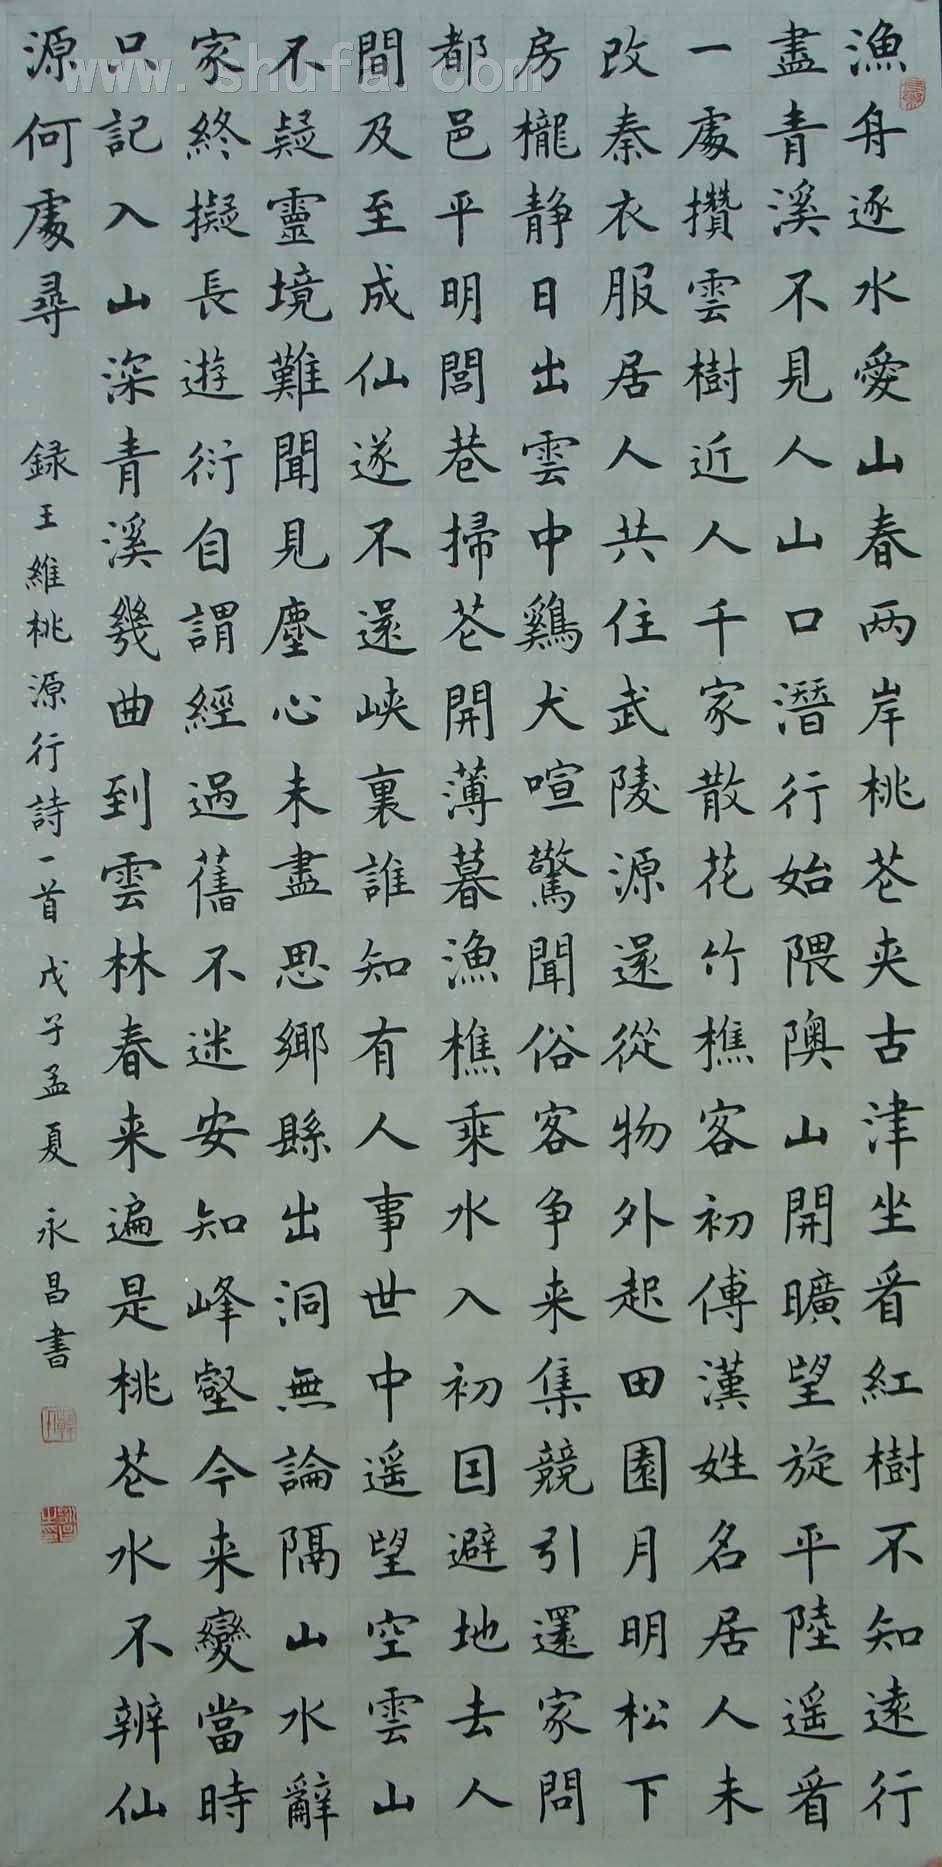 漁舟逐水愛山春两岸桃花夾古津坐看紅樹不知遠行
盡青溪不見人山口潛行始隈隩山開曠望旋平陸遥看
一處攢雲樹近人千家散花竹樵客初傳漢姓名居人未
改秦衣服居人共住武陵源還從物外起田園月明松下
房櫳静日出雲中鷄犬喧驚聞俗客争来集競引還家問
都邑平明閭巷掃花開薄暮漁樵乘水入初因避地去人
間及至成仙遂不還峽裏誰知有人事世中遥望空雲山
不疑靈境難聞見塵心未盡思鄉縣出洞無論隔山水辭
家終擬長遊衍自謂經過舊不迷安知峰壑今来變當時
只記入山深青溪幾曲到雲林春来遍是桃花水不辨仙
源何處尋
録王維桃源行詩一首戊子孟夏 永昌書
www.shufa.com